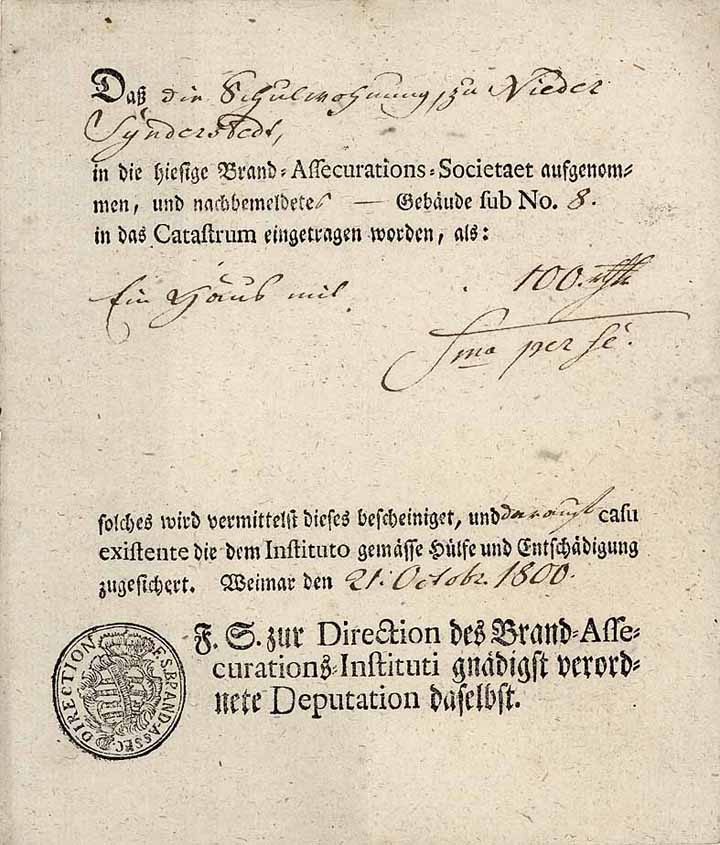 Daß die Schulwohnung, zu Nieder
Synderstedt,
in die hiesige Brand-Assecurations-Societaet aufgenom-
men, und nachbemeldetes — Gebäude sub No. 8.
in das Catastrum eingetragen worden, als:
Ein Haus mit . 100. rthlr
Sma per se.
solches wird vermittelst dieses bescheiniget, und darauf casu
existente die dem Instituto gemässe Hülfe und Entschädigung
zugesichert. Weimar den 21. Octobr. 1800.
F. S. zur Direction des Brand-Asse-
curations-Instituti gnädigst verord-
nete Deputation daselbst.
F. S. BRAND-ASSEC. DIRECTION